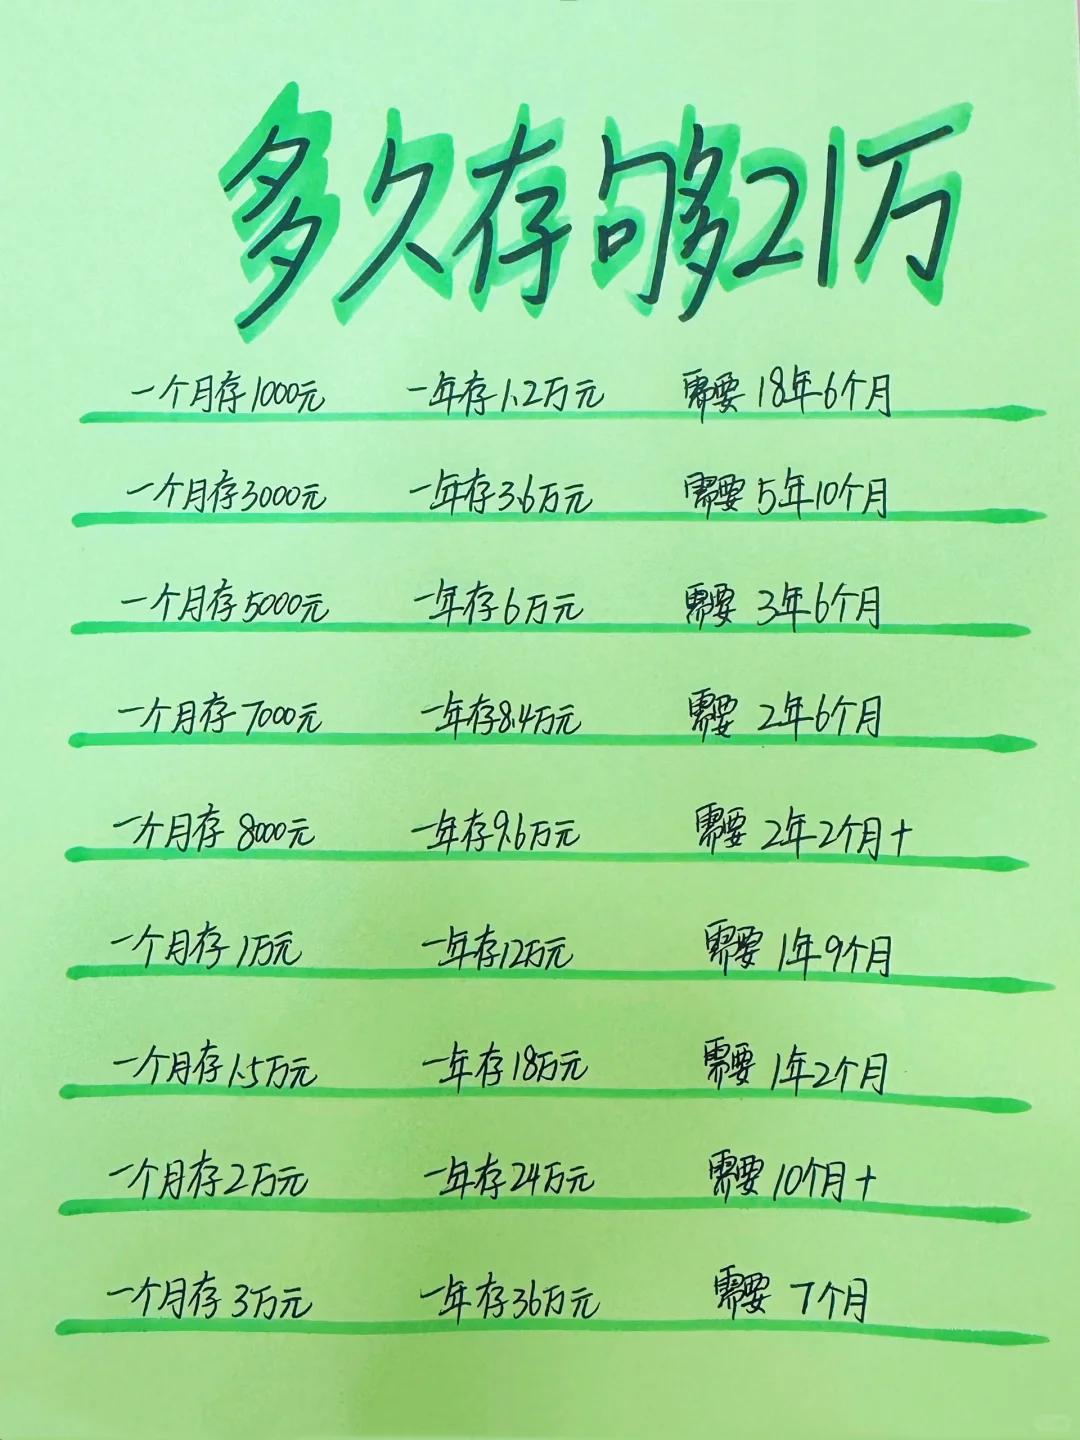 多久存够21万
一个月存1000元 一年存1.2万元 需要18年6个月
一个月存3000元 一年存3.6万元 需要5年10个月
一个月存5000元 一年存6万元 需要3年6个月
一个月存7000元 一年存8.4万元 需要2年6个月
一个月存8000元 一年存9.6万元 需要2年2个月+
一个月存1万元 一年存12万元 需要1年9个月
一个月存1.5万元 一年存18万元 需要1年2个月
一个月存2万元 一年存24万元 需要10个月+
一个月存3万元 一年存36万元 需要7个月